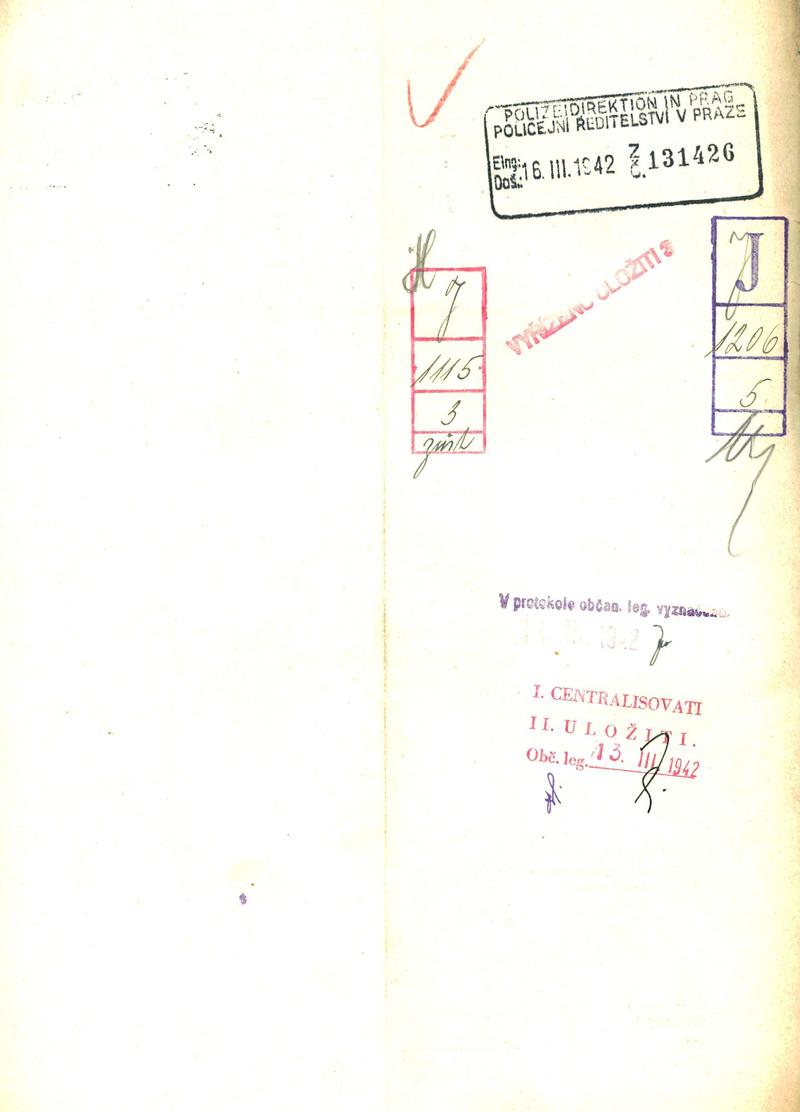 POLIZEIDIREKTION IN PRAG
POLICEJNÍ ŘEDITELSTVÍ V PRAZE
Eing.:
Doš.: 16. III. 1942 Z. Č. 131426
J
1206
5
J
1115
3
VYŘÍZENO ULOŽITI
V protokole občan. leg. vyznačeno.
1942
I. CENTRALISOVATI
II. ULOŽITI.
Obč. leg. 13. III 1942